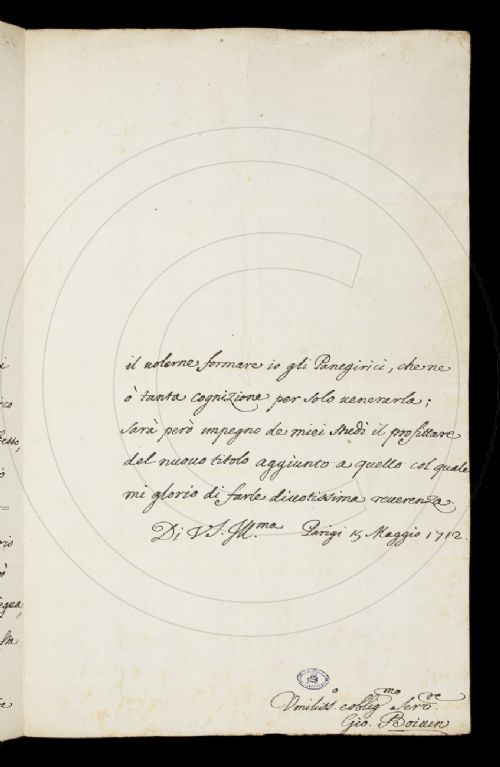 il volerne formare io gli Panegirici, che ne
ò tanta cognizione per solo venerarla;
sarà però impegno de miei studi il profittare
del nuovo titolo aggiunto a quello col quale
mi glorio di farle divotissima reverenza
Di V.S. Ill.ma Parigi 15 Maggio 1712.
Umiliss.o obblig.mo Serv.re
Gio. Boivin